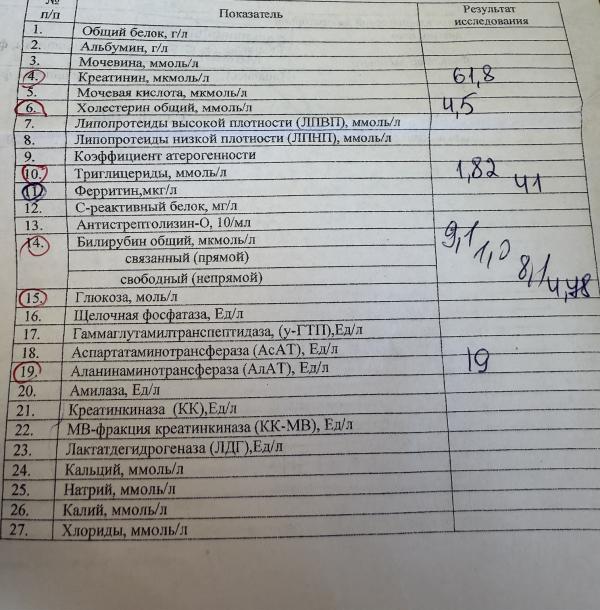 № п/п Показатель Результат исследования
1. Общий белок, г/л
2. Альбумин, г/л
3. Мочевина, ммоль/л
4. Креатинин, мкмоль/л 61,8
5. Мочевая кислота, мкмоль/л
6. Холестерин общий, ммоль/л 4,5
7. Липопротеиды высокой плотности (ЛПВП), ммоль/л
8. Липопротеиды низкой плотности (ЛПНП), ммоль/л
9. Коэффициент атерогенности
10. Триглицериды, ммоль/л 1,82
11. Ферритин,мкг/л 41
12. С-реактивный белок, мг/л
13. Антистрептолизин-О, 10/мл
14. Билирубин общий, мкмоль/л 9,1
связанный (прямой) 1,0
свободный (непрямой) 8,1
15. Глюкоза, моль/л 4,78
16. Щелочная фосфатаза, Ед/л
17. Гаммаглутамилтранспептидаза, (у-ГТП),Ед/л
18. Аспартатаминотрансфераза (АсАТ), Ед/л
19. Аланинаминотрансфераза (АлАТ), Ед/л 19
20. Амилаза, Ед/л
21. Креатинкиназа (КК),Ед/л
22. МВ-фракция креатинкиназа (КК-МВ), Ед/л
23. Лактатдегидрогеназа (ЛДГ),Ед/л
24. Кальций, ммоль/л
25. Натрий, ммоль/л
26. Калий, ммоль/л
27. Хлориды, ммоль/л